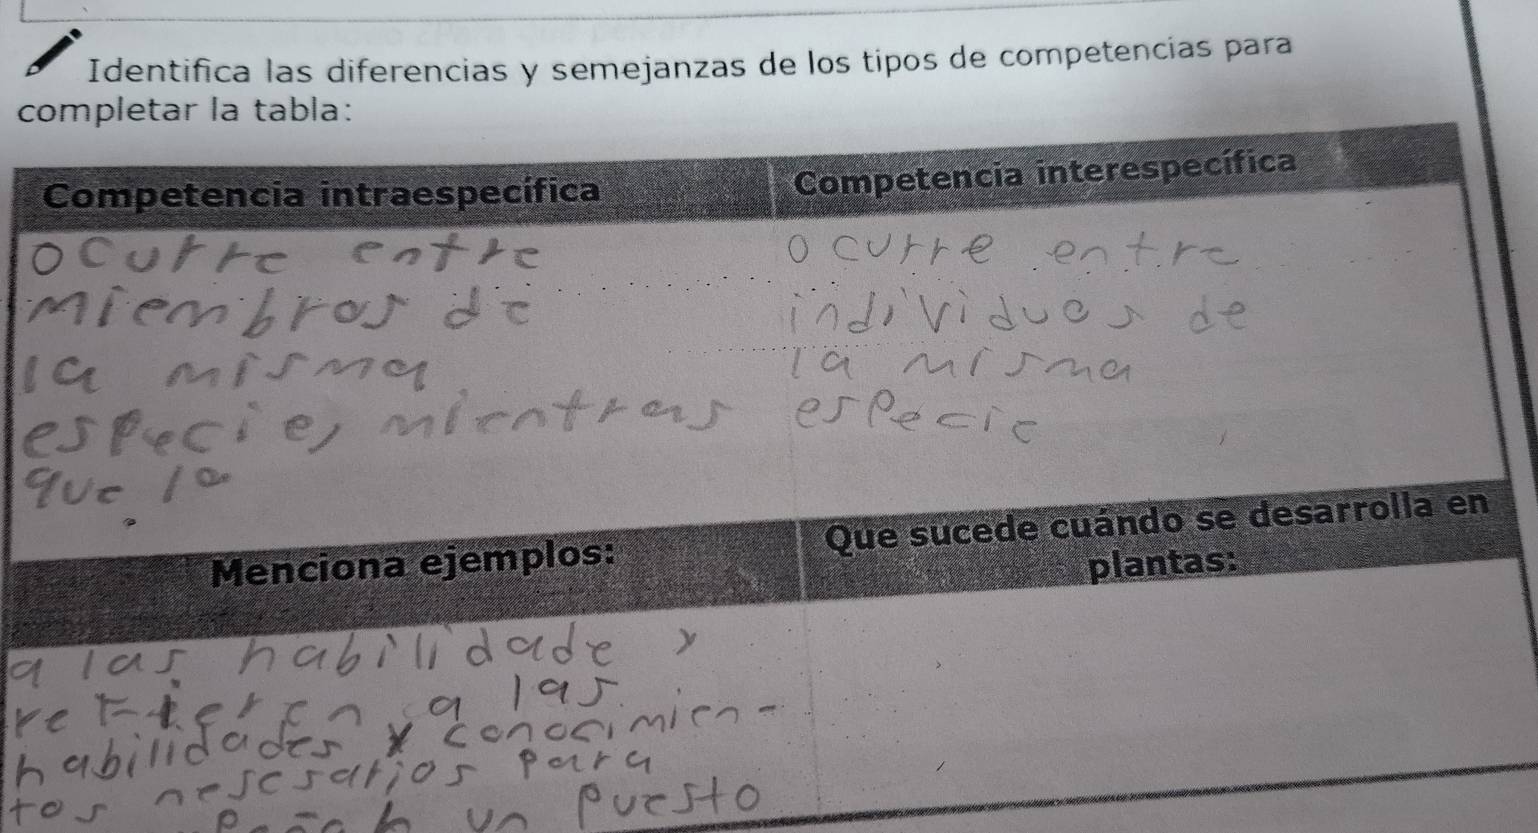 Identifica las diferencias y semejanzas de los tipos de competencias para
completar la tabla:
Competencia intraespecífica
Competencia interespecífica
ocurre entre
miembros de
la misma
especie, mientras
que la
ocurre entre
individuos de
la misma
especie
Menciona ejemplos:
Que sucede cuándo se desarrolla en
plantas:
a las habilidade y
refieren a las
habilidades y conocimien-
tos nesesarios para
un puesto